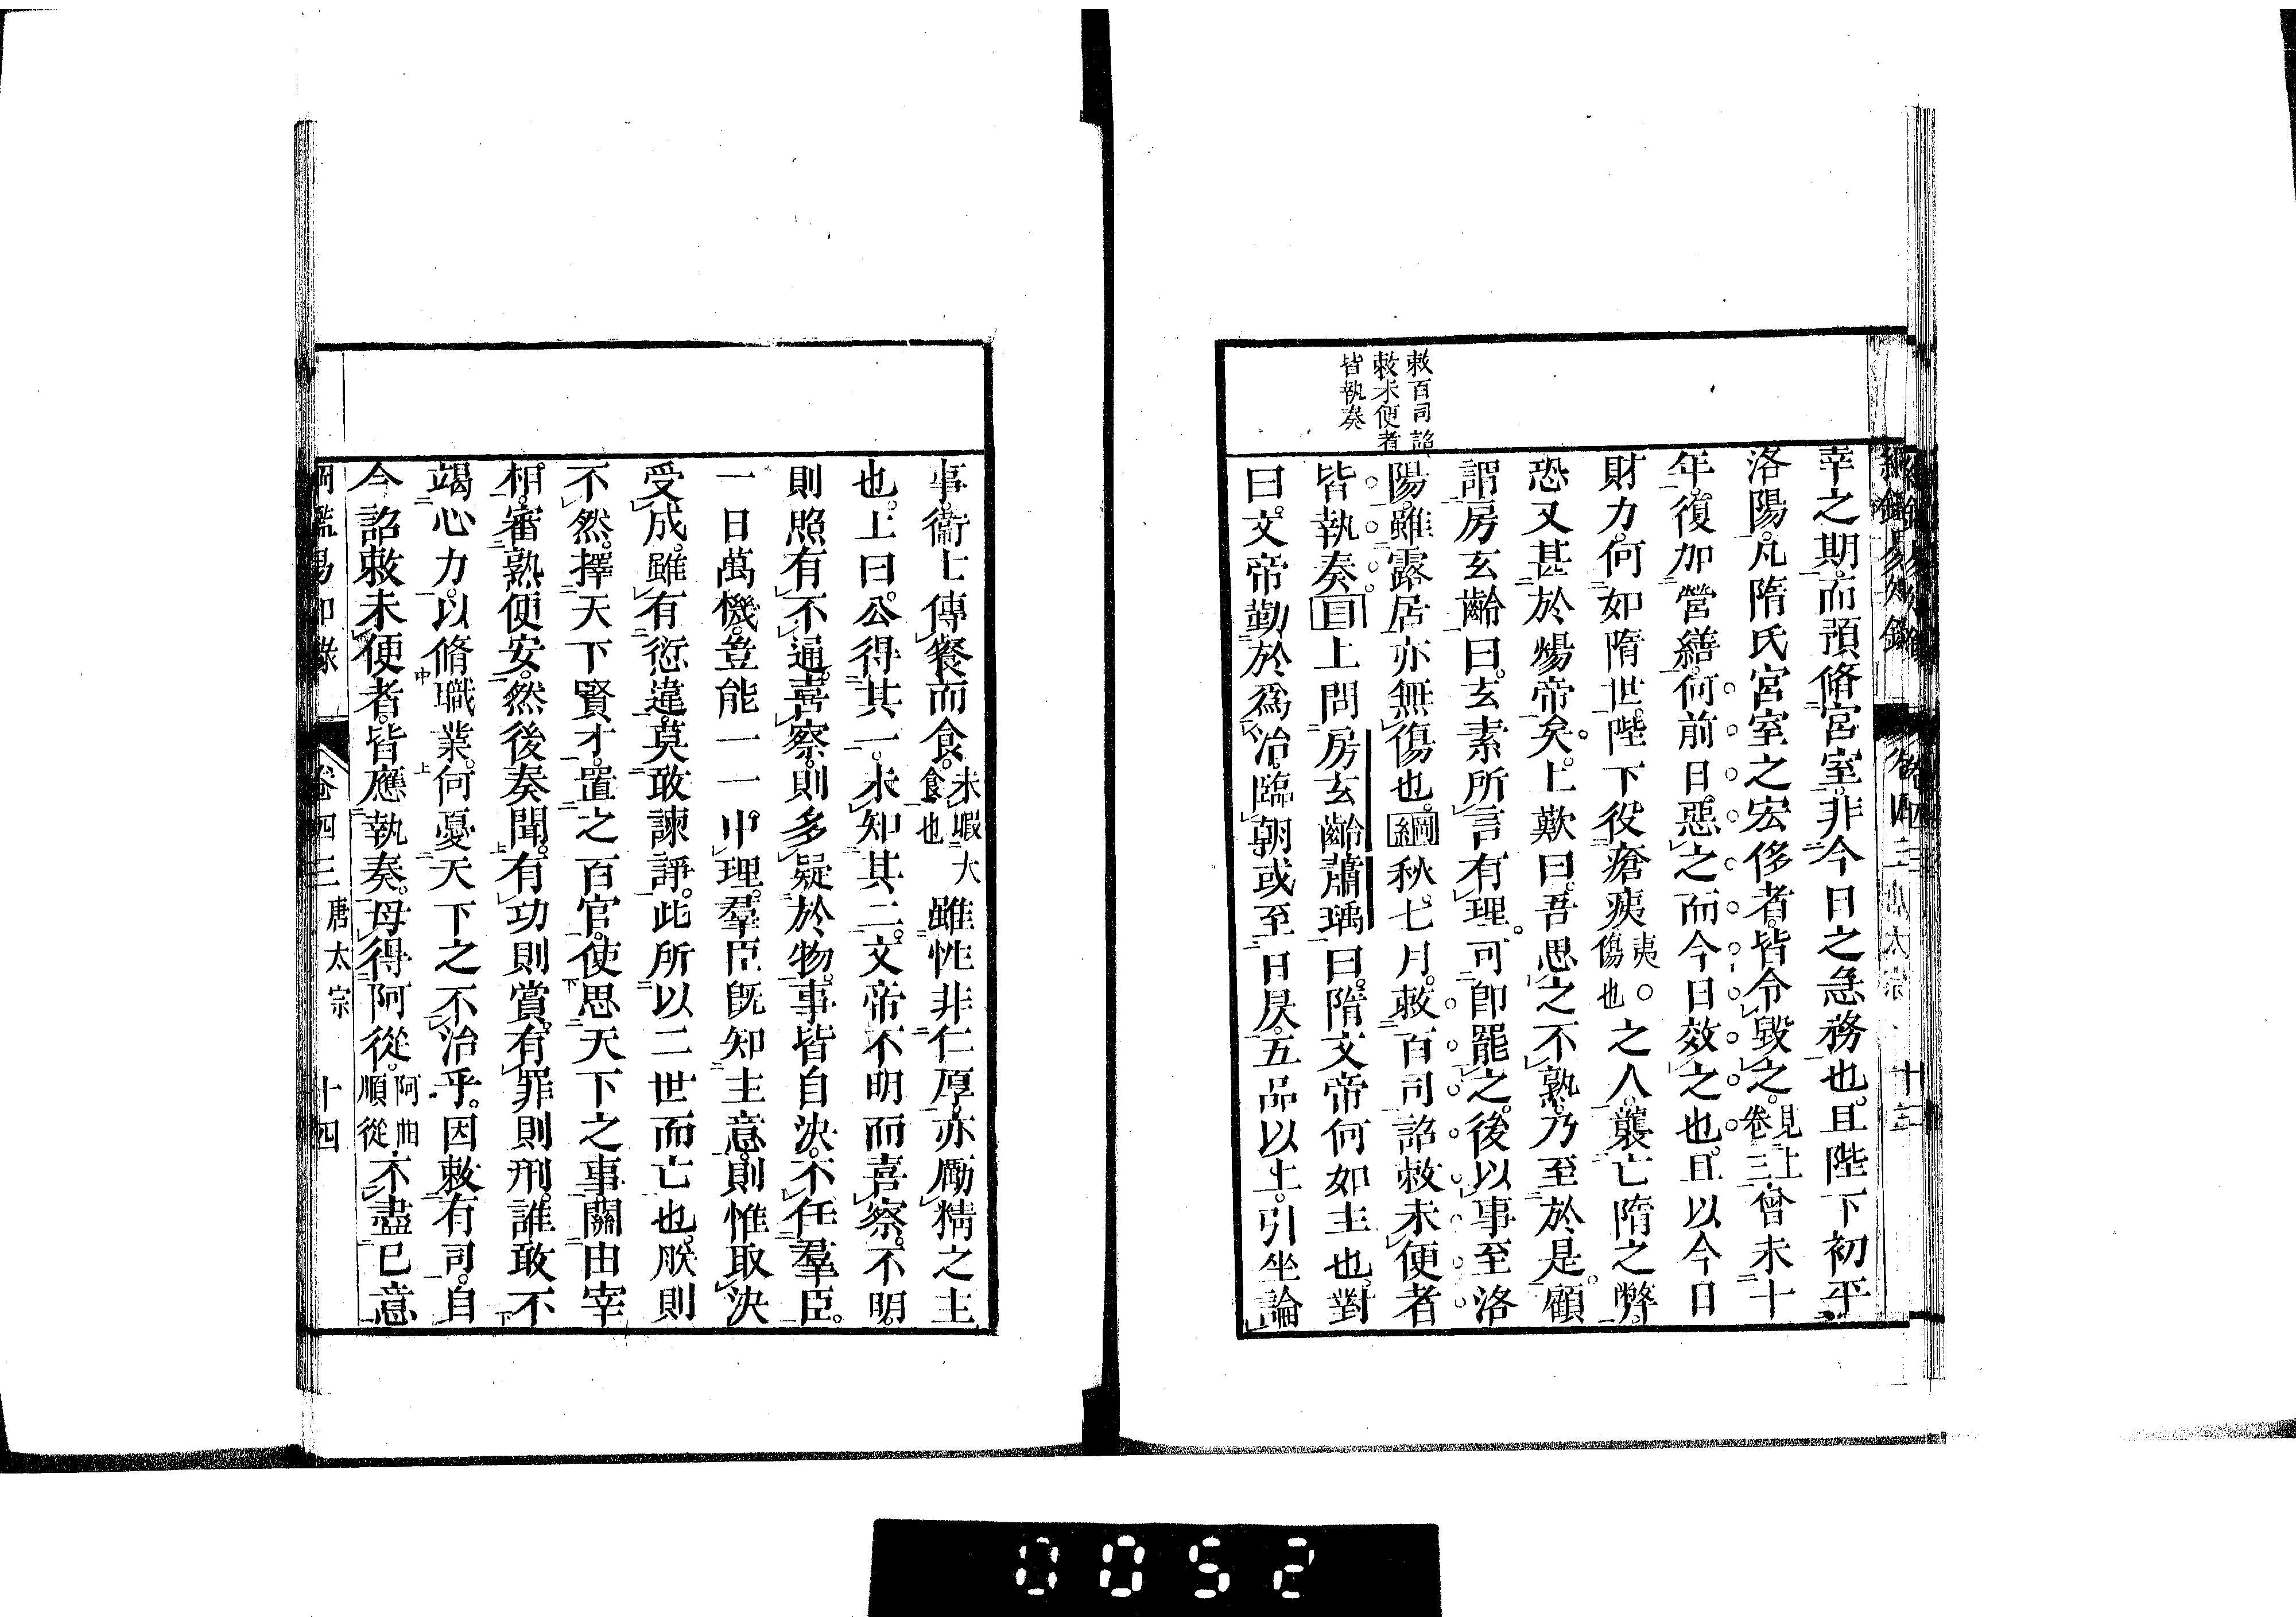 幸之期。而預脩宮室。非今日之急務也。且陛下初平
洛陽。凡隋氏宮室之宏侈者。皆令毀之。見上卷三曾未十
年。復加營繕。何前日惡之而今日效之也。且以今日
財力。何如隋世。陛下役瘡痍夷○傷也之人。襲亡隋之弊。
恐又甚於煬帝矣。上歎曰。吾思之不熟。乃至於是。顧
謂房玄齡曰。玄素所言有理。可卽罷之。後以事至洛
敕百司詔
敕未便者
皆執奏
陽。雖露居亦無傷也。綱秋。七月。敕百司詔敕未便者
皆執奏。目上問房玄齡蕭瑀曰。隋文帝何如主也。對
曰。文帝勤於爲治。臨朝或至日昃。五品以上。引坐論
事。衞士傳餐而食。未暇大食也雖性非仁厚。亦勵精之主
也。上曰。公得其一。未知其二。文帝不明而喜察。不明。
則照有不通。喜察。則多疑於物。事皆自決。不任羣臣。
一日萬機。豈能一一中理。羣臣旣知主意。則惟取決
受成。雖有愆違。莫敢諫諍。此所以二世而亡也。朕則
不然。擇天下賢才。置之百官。使思天下之事。關由宰
相。審熟便安。然後奏聞。有功則賞。有罪則刑。誰敢不
竭心力。以脩職業。何憂天下之不治乎。因敕有司。自
今詔敕未便者。皆應執奏。毋得阿從。阿曲順從不盡已意
綱鑑易知錄 卷四三 唐太宗 十四
0052